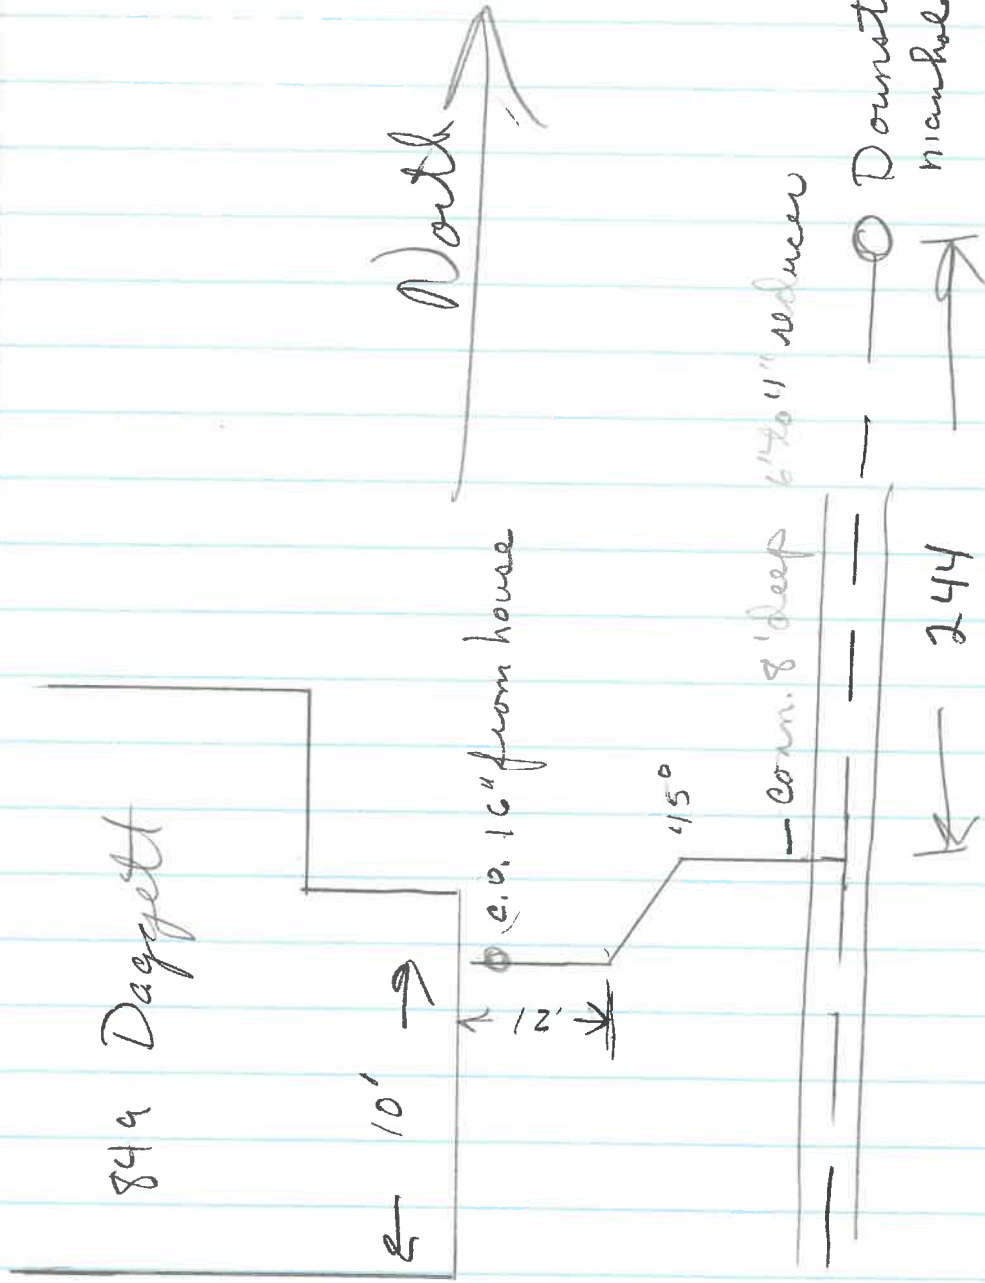 849 Dagett
North
← 10' →
c.o. 16" from house
12'
45°
conn. 8' deep 6" to 4" reducer
244
Downst
manhole